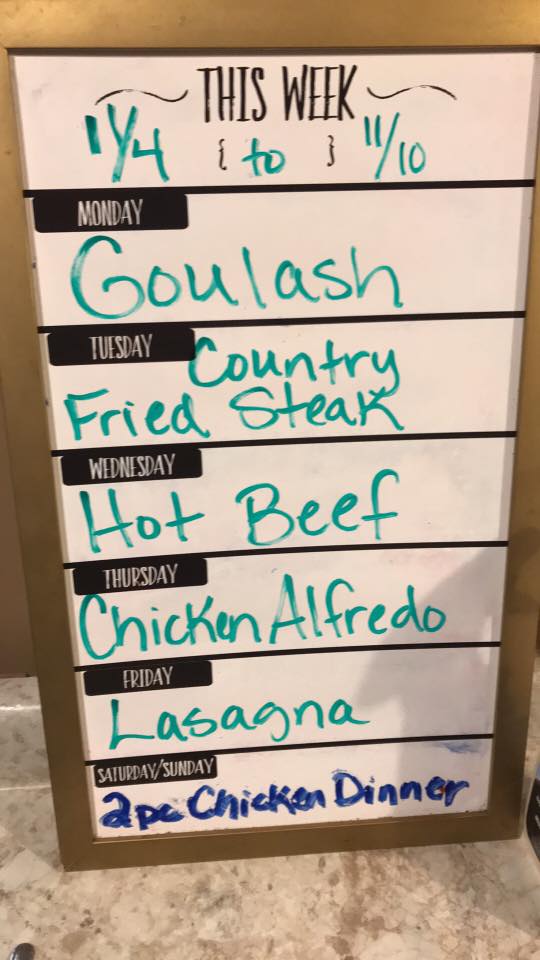 THIS WEEK
11/4 { to } 11/10
MONDAY
Goulash
TUESDAY
Country
Fried Steak
WEDNESDAY
Hot Beef
THURSDAY
Chicken Alfredo
FRIDAY
Lasagna
SATURDAY/SUNDAY
2pc Chicken Dinner